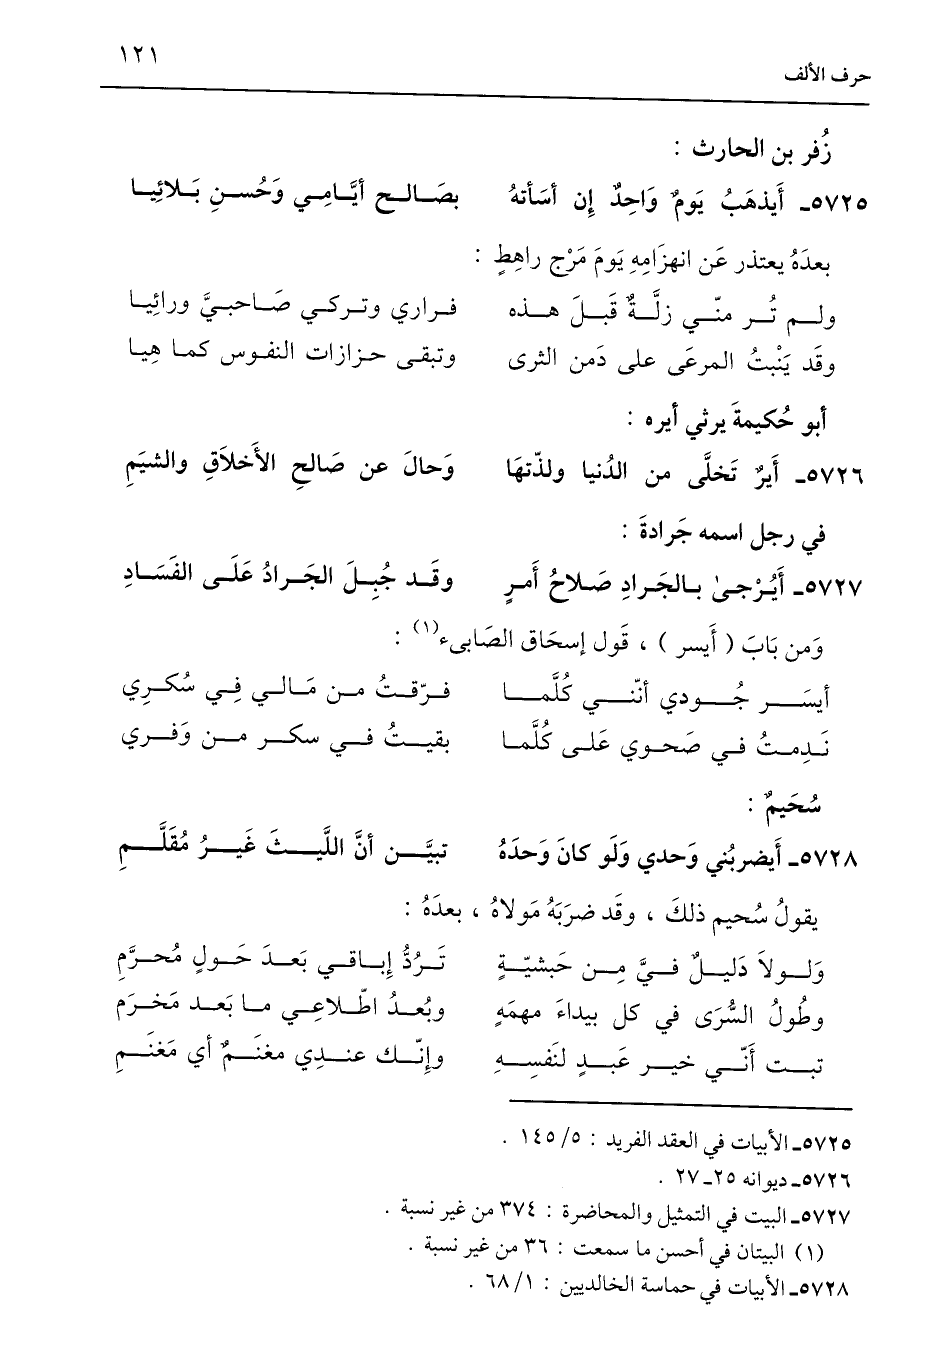 ١٢١
حرف الألف
زُفر بن الحارث :
٥٧٢٥ـ أَيذهَبُ يَومٌ وَاحِدٌ إِن أَسَأتهُ بصَالح أيَّامِي وَحُسنِ بَلائِيا
بعدَهُ يعتذر عَن انهزَامِهِ يَومَ مَرْج راهطٍ :
ولم تُر منّي زلَّةٌ قَبلَ هذه فراري وتركي صَاحبيَّ ورائِيا
وقَد يَنْبتُ المرعَى على دَمن الثرى وتبقى حزازات النفوس كما هِيا
أبو حُكيمةَ يرثي أيره :
٥٧٢٦ـ أَيرٌ تَخلَّى من الدُنيا ولذّتهَا وَحالَ عن صَالحِ الأَخلاَقِ والشيَمِ
في رجل اسمه جَرادةَ :
٥٧٢٧ـ أَيُرْجىٰ بالجَرادِ صَلاحُ أَمرٍ وقَد جُبلَ الجَرادُ عَلَى الفَسَادِ
وَمن بَابَ ( أَيسر ) ، قَول إسحَاق الصَابىء(١) :
أيسَر جُودي أنّني كُلَّما فرّقتُ من مَالي فِي سُكرِي
نَدِمتُ في صَحوي عَلى كُلَّما بقيتُ في سكر من وَفري
سُحَيمٌ :
٥٧٢٨ـ أَيضربُني وَحدي وَلَو كانَ وَحدَهُ تبيَّن أنَّ اللَّيثَ غَيرُ مُقَلَّمِ
يقولُ سُحيم ذلكَ ، وقَد ضرَبَهُ مَولاهُ ، بعدَهُ :
وَلولاَ دَليلٌ فيَّ مِن حَبشيّةٍ تَردُّ إباقي بَعدَ حَولٍ مُحرَّمِ
وطُولُ السُّرَى في كل بيداءَ مهمَهٍ وبُعدُ اطّلاعِي ما بَعد مَخرَم
تبت أَنّي خير عَبدٍ لنَفسِه وإنّك عندي مغنَمٌ أي مَغنَم
٥٧٢٥ـ الأبيات في العقد الفريد : ٥/ ١٤٥ .
٥٧٢٦ـ ديوانه ٢٥ـ ٢٧ .
٥٧٢٧ـ البيت في التمثيل والمحاضرة : ٣٧٤ من غير نسبة .
(١) البيتان في أحسن ما سمعت : ٣٦ من غير نسبة .
٥٧٢٨ـ الأبيات في حماسة الخالديين : ١/ ٦٨ .